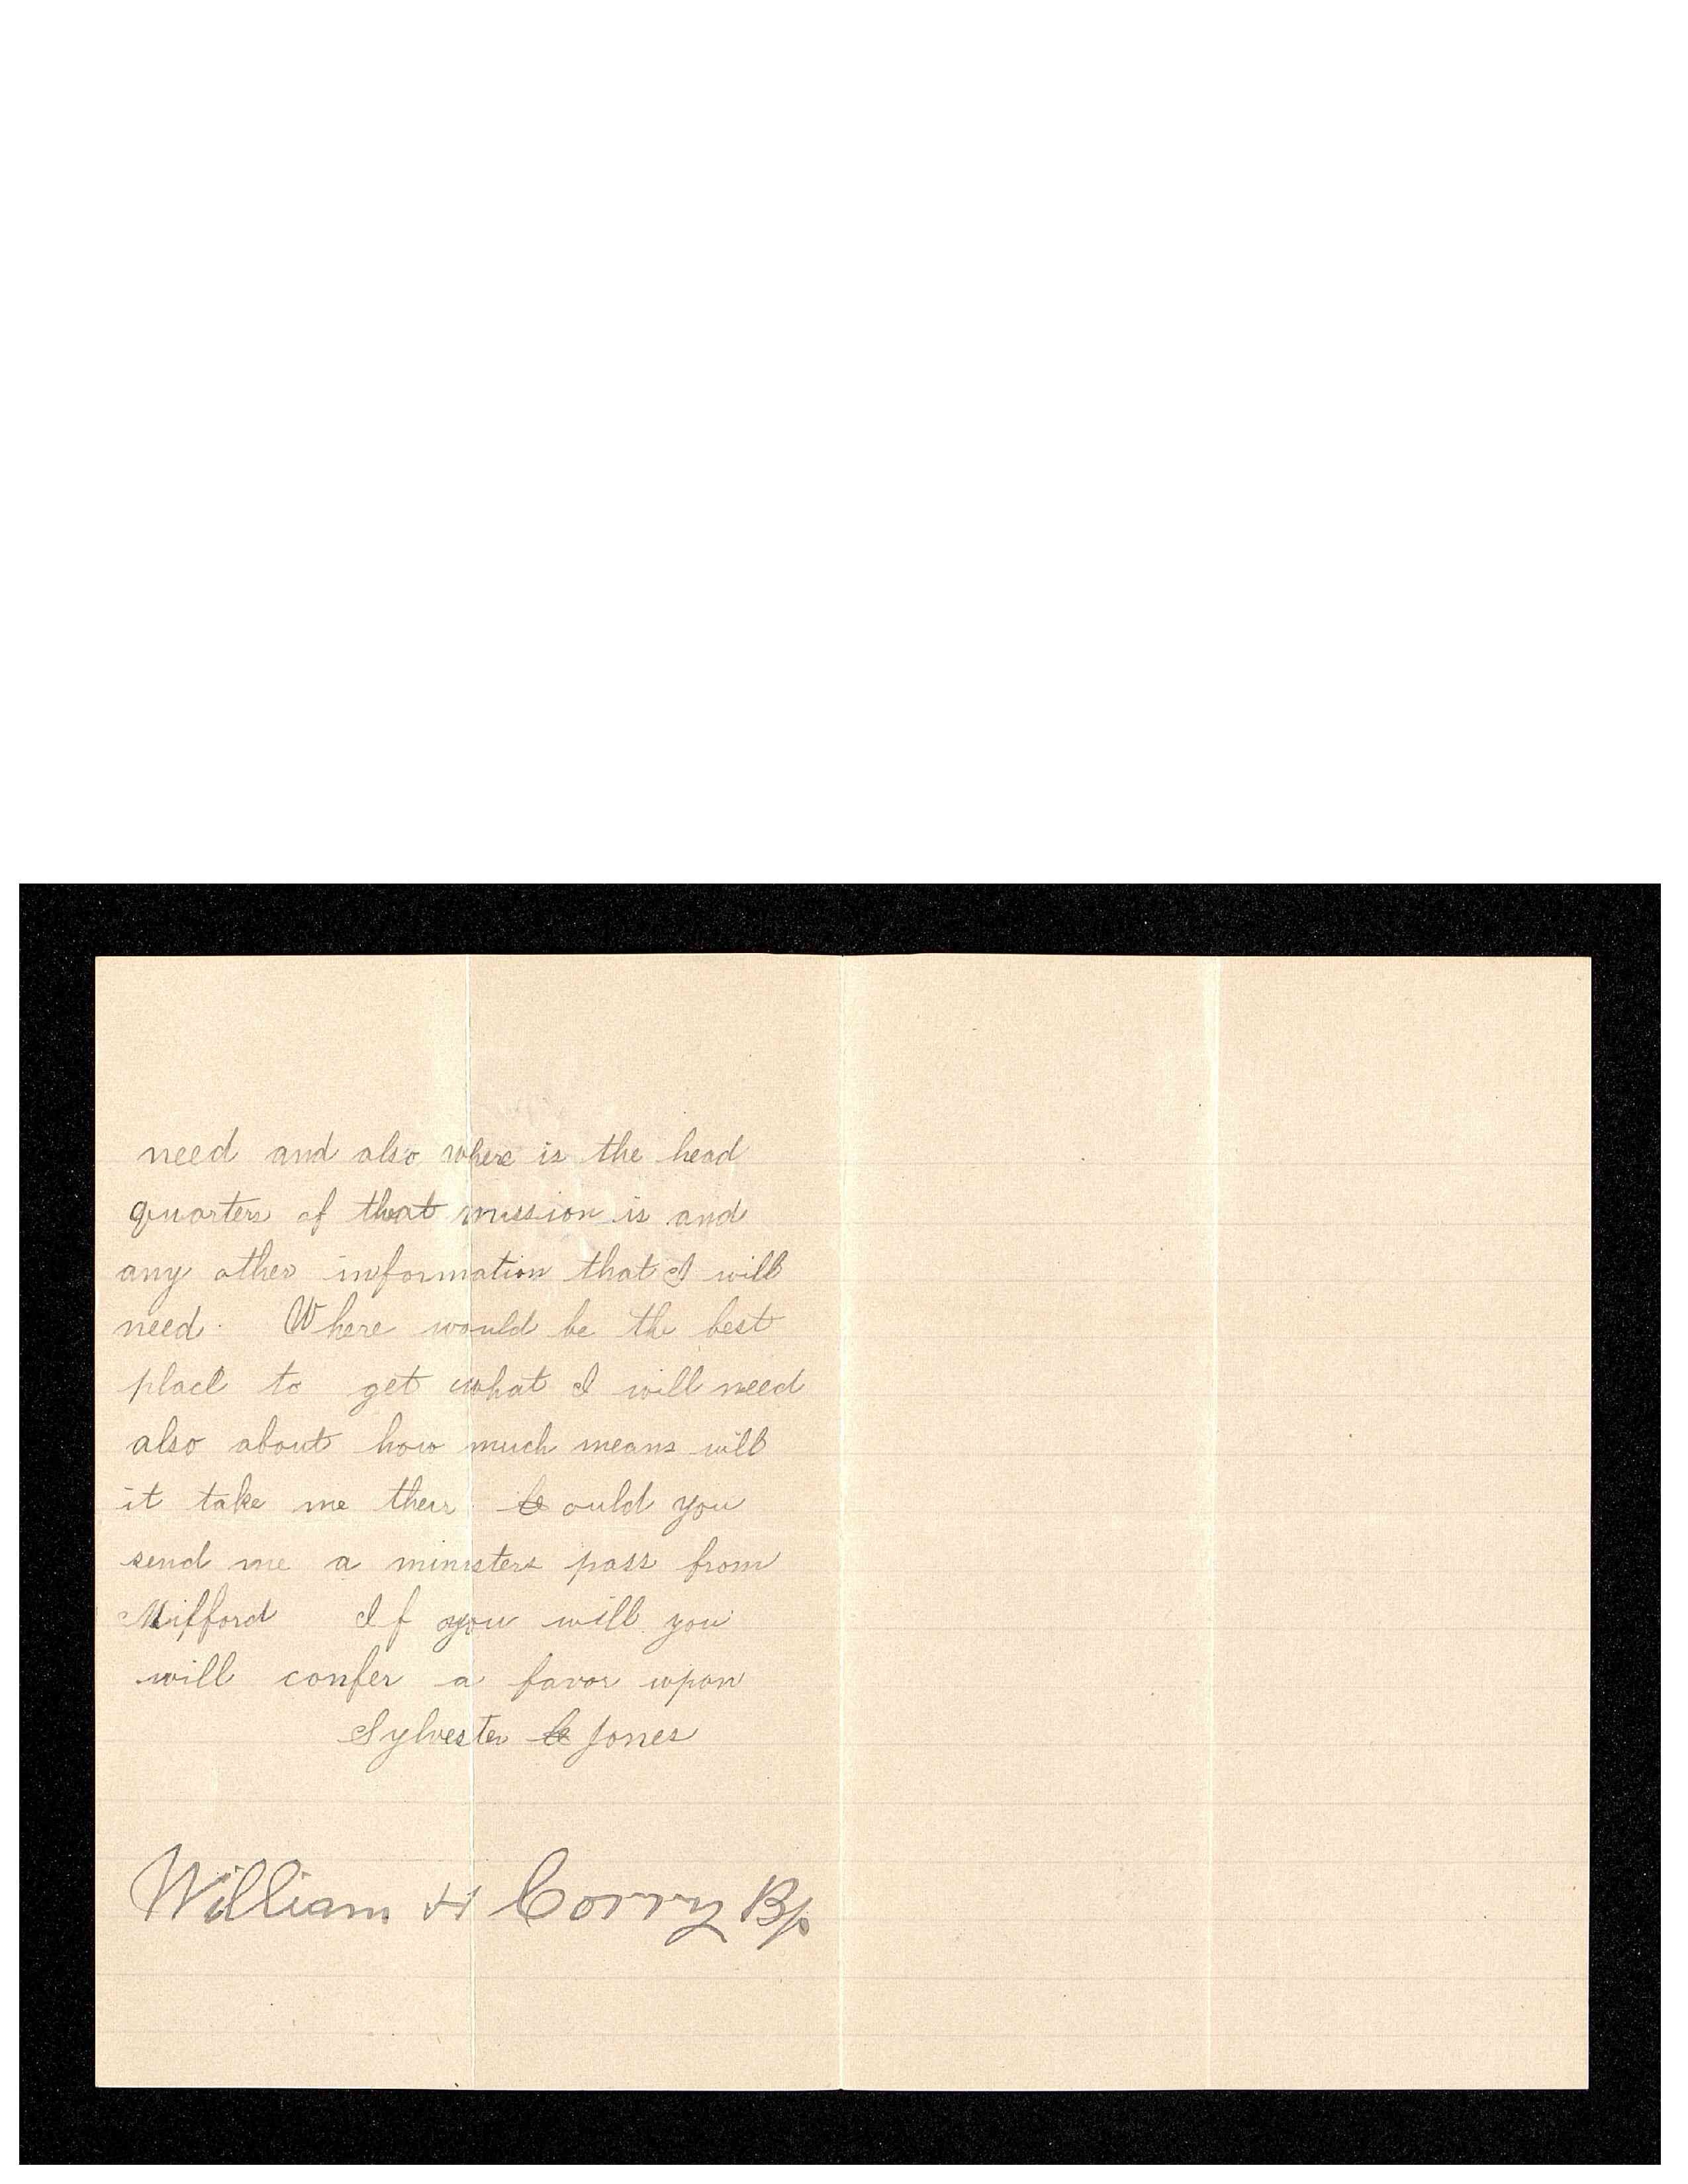 need and also where is the head
quarters of that mission is and
any other information that I will
need. Where would be the best
place to get what I will need
also about how much means will
it take me their. Could you
send me a ministers pass from
Milfford If you will you
will confer a favor upon
Sylvester C Jones
William H Corry Bp